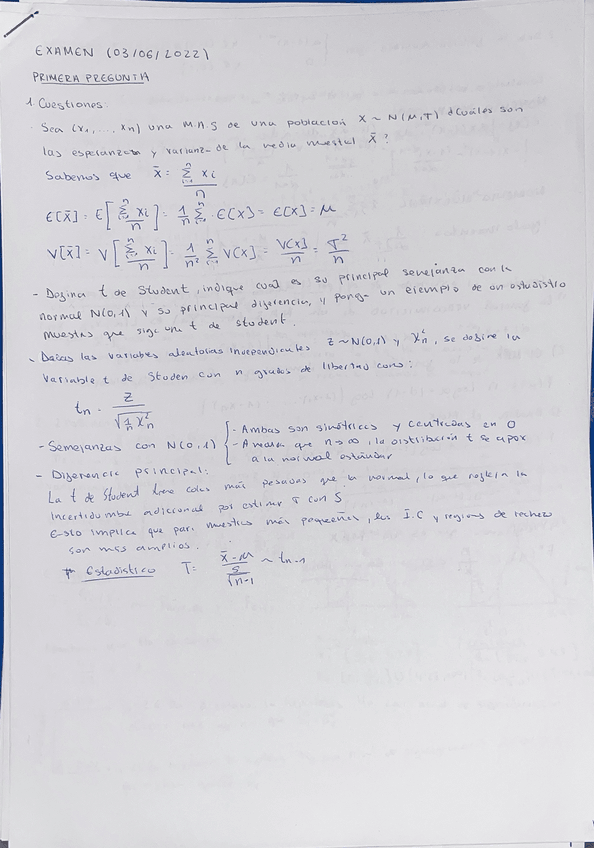 EXAMEN (03/06/2022)
PRIMERA PREGUNTA
1. Cuestiones:
· Sea (x₁, ..., xn) una M.A.S de una población X ~ N(μ, σ) ¿Cuáles son
las esperanzas y varianza de la media muestral X̄?
Sabemos que X̄ = Σᵢ₌₁ⁿ xi / n
E[X̄] = E[Σᵢ₌₁ⁿ xi / n] = 1/n Σᵢ₌₁ⁿ E(X) = E[X] = μ
V[X̄] = V[Σᵢ₌₁ⁿ xi / n] = 1/n² Σᵢ₌₁ⁿ V(X) = V(X)/n = σ²/n
- Defina t de Student, indique cual es su principal semejanza con la
normal N(0,1) y su principal diferencia, y ponga un ejemplo de un estadístico
muestral que siga una t de student.
- Dadas las variables aleatorias independientes Z ~ N(0,1) y χ²n, se define la
variable t de Studen con n grados de libertad como:
tn = Z / √(1/n χ²n)
- Semejanzas con N(0,1) { - Ambas son simétricas y centradas en 0
- A medida que n→∞, la distribución t se aprox
a la normal estándar
- Diferencia principal:
La t de Student tiene colas más pesadas que la normal, lo que refleja la
incertidumbre adicional por estimar σ con S.
Esto implica que para muestras más pequeñas, los I.C y regiones de rechazo
son más amplios.
* Estadístico T = (X̄ - μ) / (S / √n-1) ~ tn-1